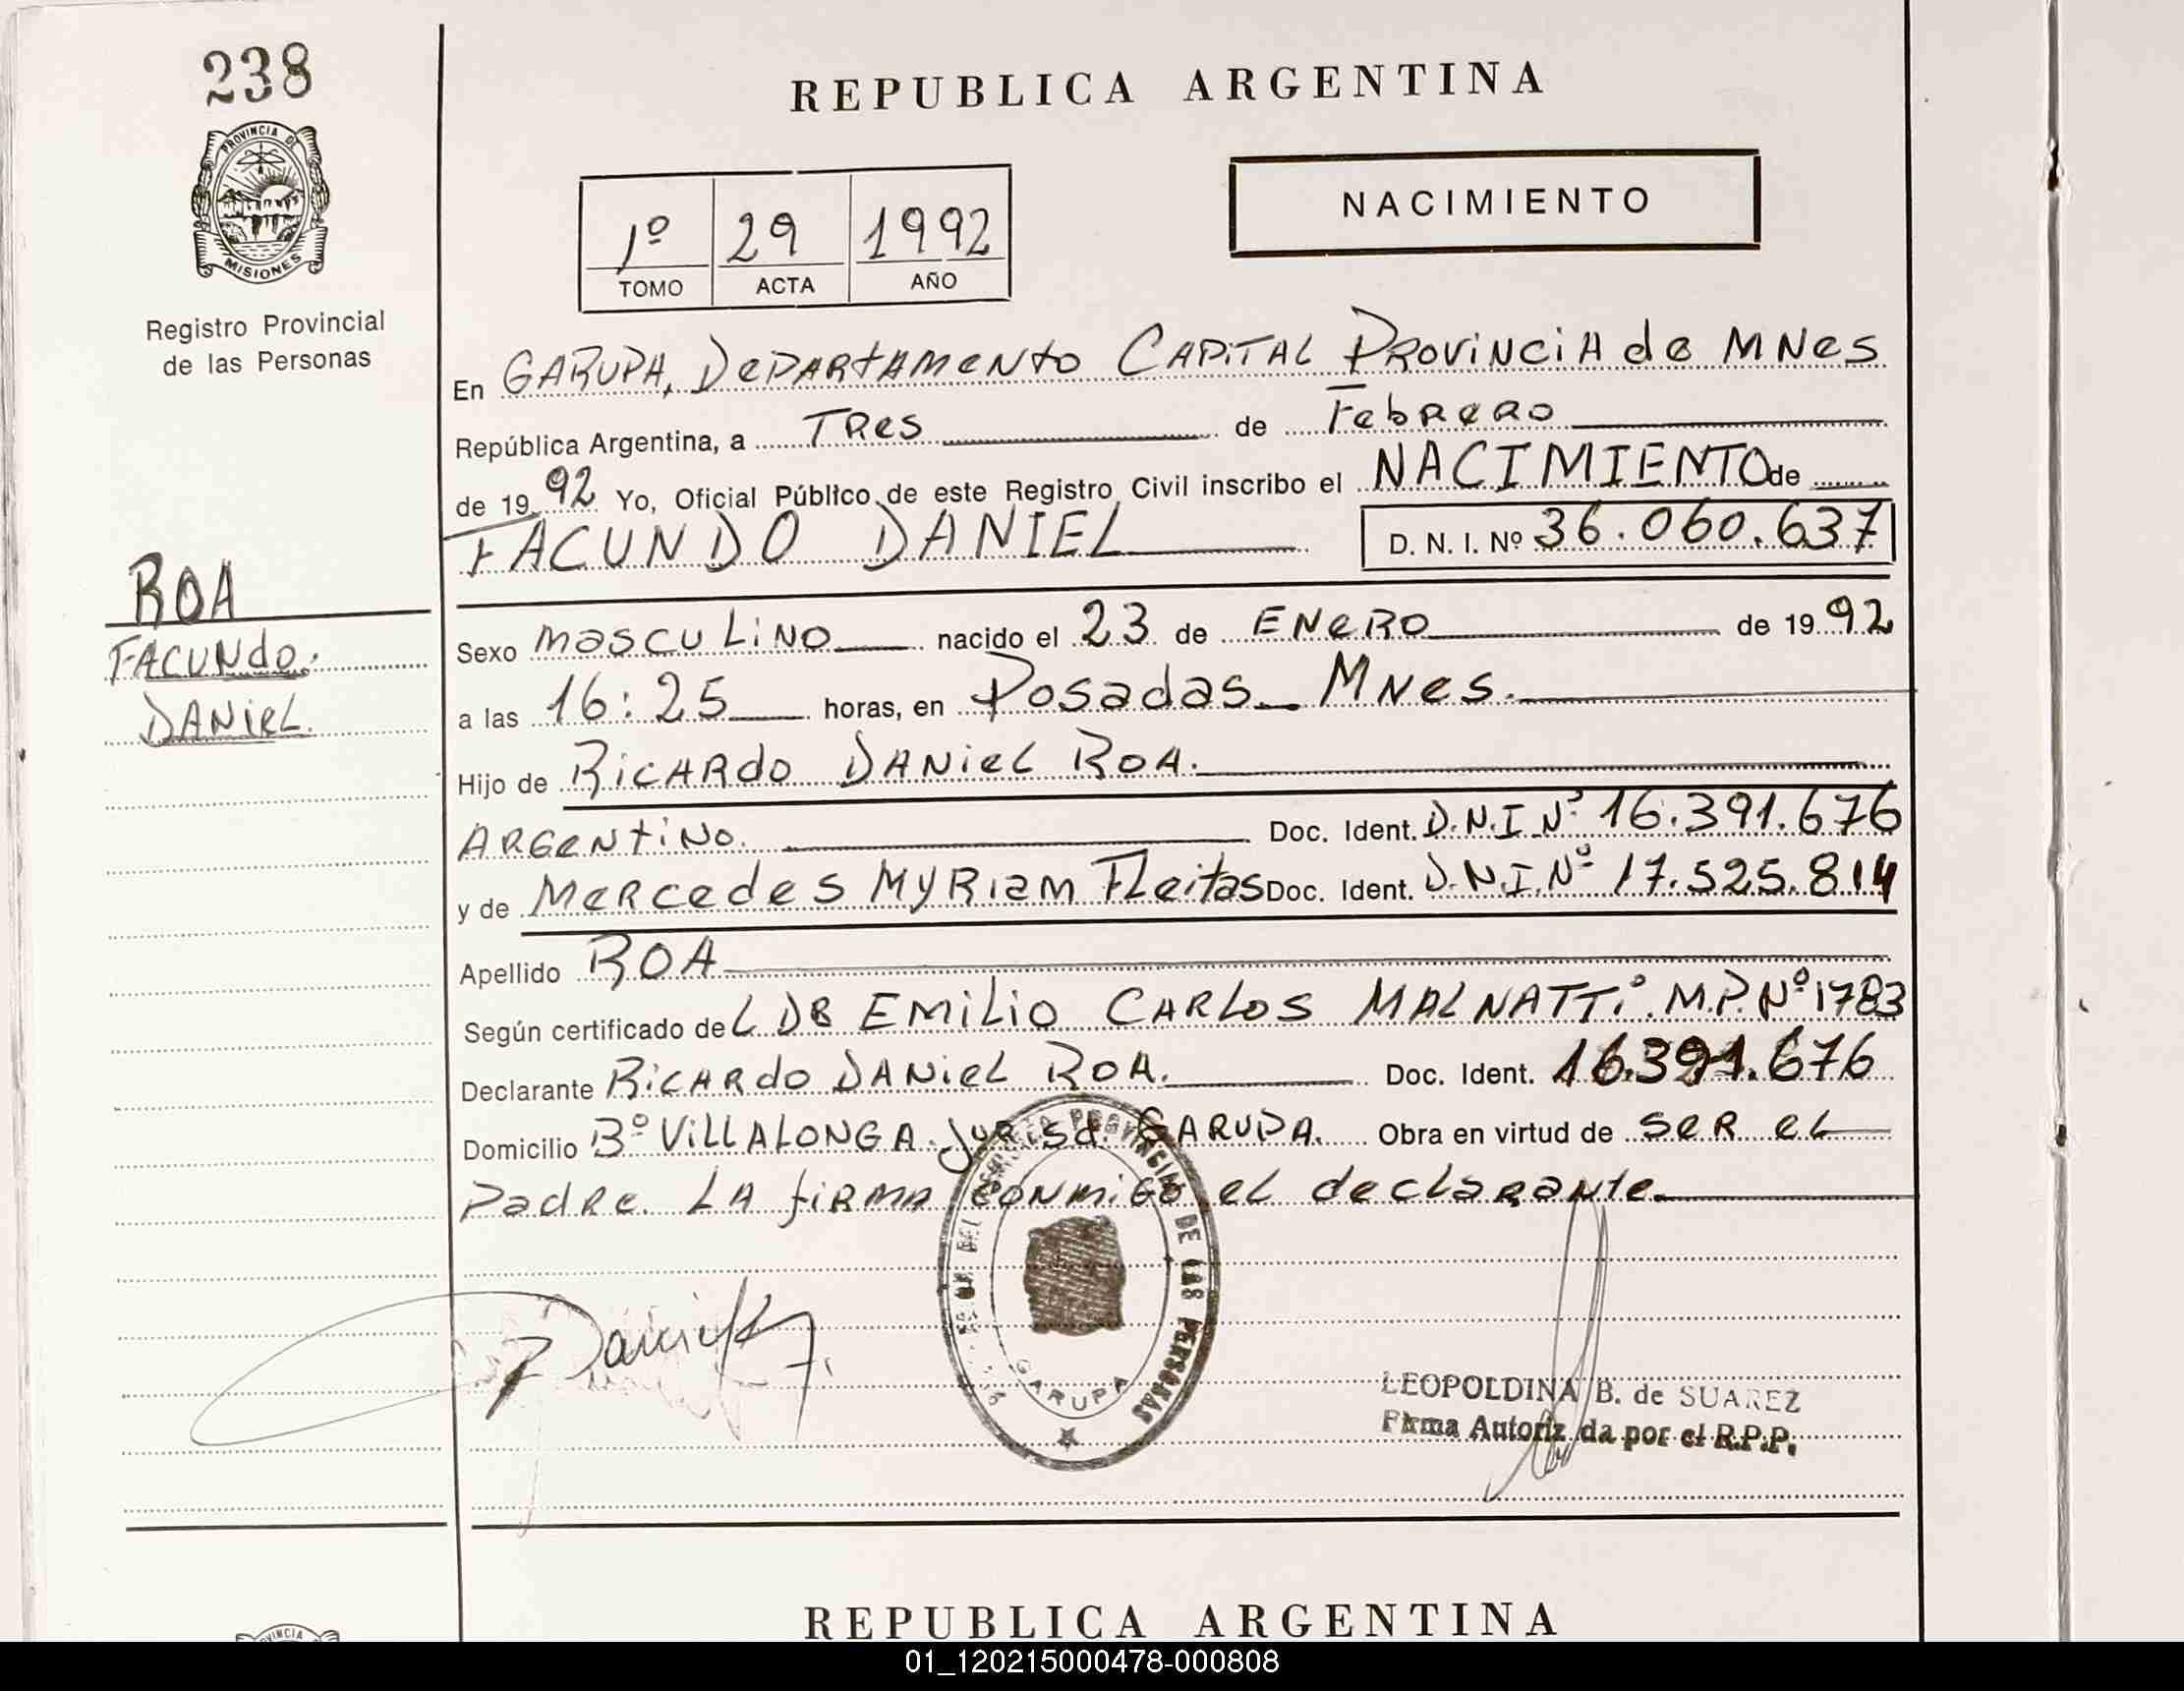 238
REPUBLICA ARGENTINA
PROVINCIA DE
MISIONES
Registro Provincial
de las Personas
1º 29 1992
TOMO ACTA AÑO
NACIMIENTO
En GARUPA, DePARtAMeNto CAPiTAL PRoViNCiA de MNes
República Argentina, a TRes de FebReRo
de 1992 Yo, Oficial Público de este Registro Civil inscribo el NACIMIENTO de
FACUNDO DANIEL D. N. I. Nº 36.060.637
ROA
FACUNdo
DANieL.
Sexo masCuLiNo nacido el 23 de ENeRO de 1992
a las 16:25 horas, en Posadas MNes.
Hijo de RiCARdo DANieL RoA.
ARGeNtiNo. Doc. Ident. D.N.I Nº 16.391.676
y de MeRCedeS MYRiam FLeitas Doc. Ident. D.N.I.Nº 17.525.814
Apellido ROA
Según certificado de L DR EMiLio CARLoS MALNATTi. M.P.Nº1783
Declarante RiCARdo DANieL RoA. Doc. Ident. 16.391.676
Domicilio Bº ViLLALONGA. Jurisd. GARUPA. Obra en virtud de seR eL
PadRe. LA fiRMA CoNmiGo eL declaRante.
DE LAS PERSONAS
GARUPA
LEOPOLDINA B. de SUAREZ
Firma Autoriz da por el R.P.P.
REPUBLICA ARGENTINA
01_120215000478-000808